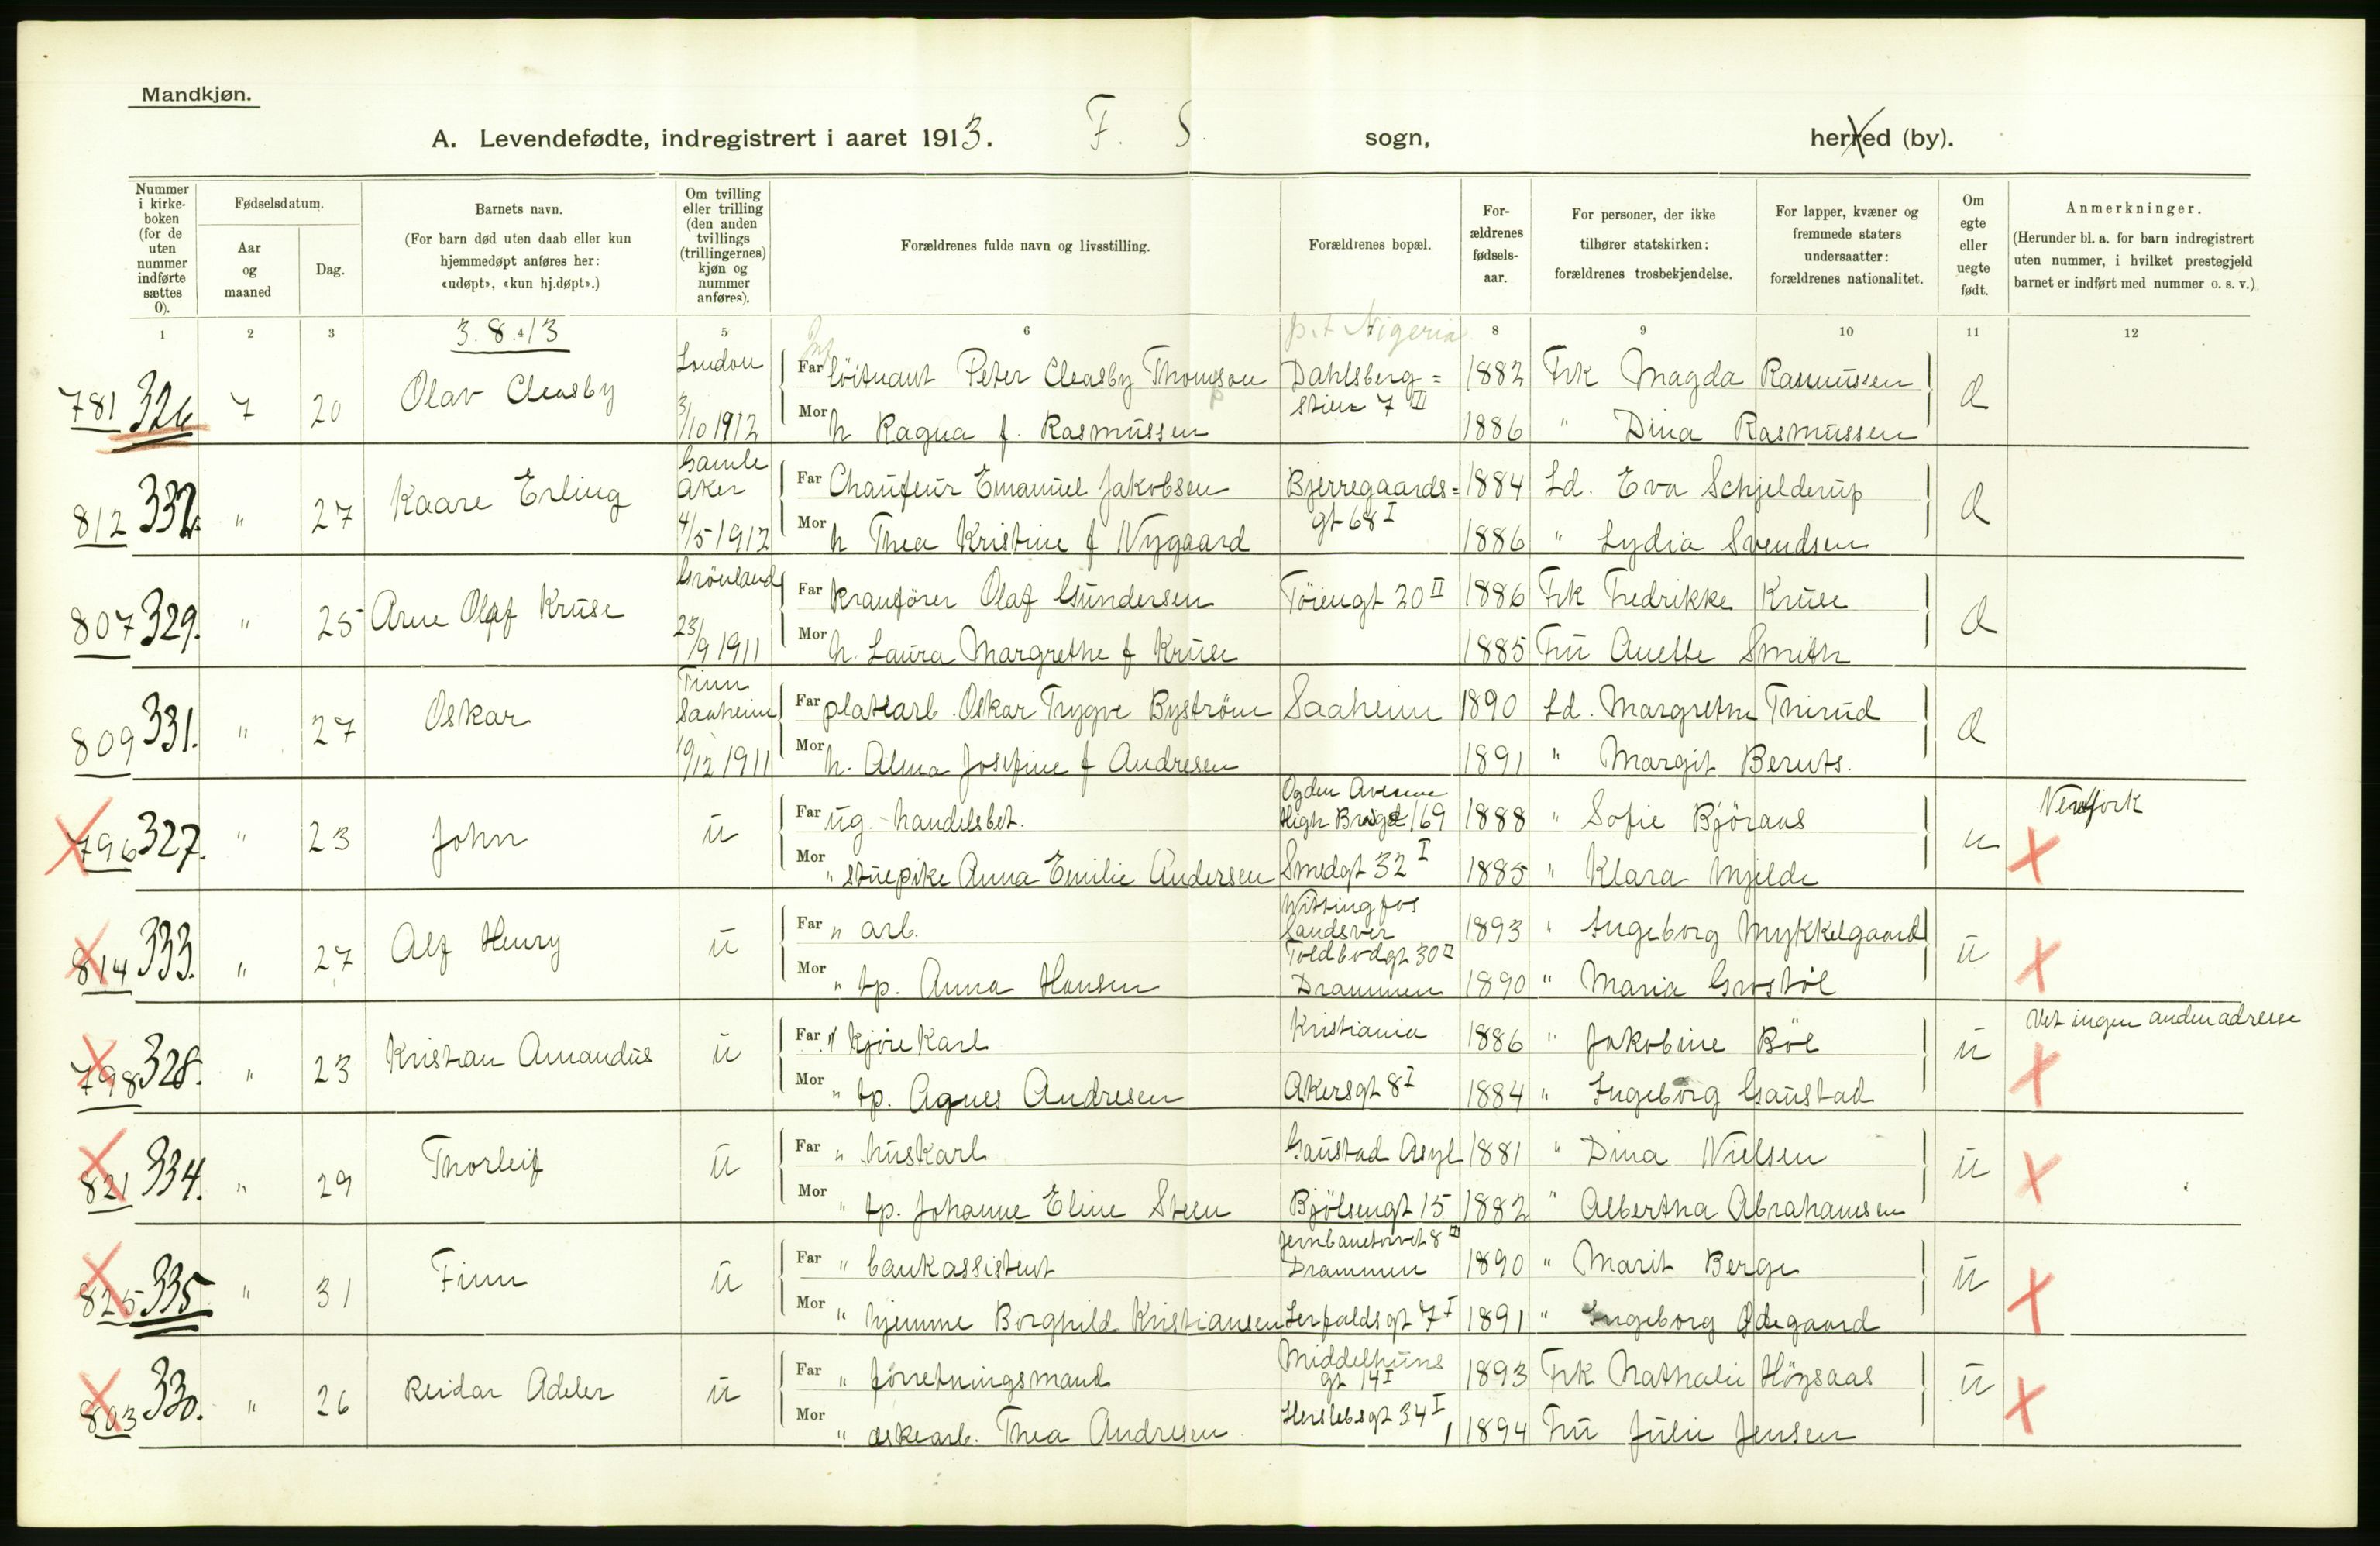 Mandkjøn.
A. Levendefødte, indregistrert i aaret 1913. F. S. sogn, herred (by).
Nummer i kirke-boken (for de uten nummer indførte sættes 0).
Fødselsdatum.
Aar og maaned
Dag.
Barnets navn.
(For barn død uten daab eller kun hjemmedøpt anføres her: «udøpt», «kun hj.døpt».)
Om tvilling eller trilling (den anden tvillings (trillingernes) kjøn og nummer anføres).
Forældrenes fulde navn og livsstilling.
Forældrenes bopæl.
For-ældrenes fødsels-aar.
For personer, der ikke tilhører statskirken: forældrenes trosbekjendelse.
For lapper, kvæner og fremmede staters undersaatter: forældrenes nationalitet.
Om egte eller uegte født.
Anmerkninger.
(Herunder bl. a. for barn indregistrert uten nummer, i hvilket prestegjeld barnet er indført med nummer o. s. v.)
1 2 3 4 5 6 8 9 10 11 12
3.8.13
p.t Nigeria
781 326 7 20 Olav Cleasby London 3/10 1912
Far løitnant Peter Cleasby Thompson Dahlsberg= 1882 Frk Magda Rasmussen
Mor h Ragna f. Rasmussen stien 7 III 1886 " Dina Rasmussen
812 332. " 27 Kaare Erling Gamle Aker 4/5 1912
Far Chaufeur Emanuel Jakobsen Bjerregaards= 1884 Ld. Eva Schjelderup
Mor h Thea Kristine f Nygaard gt 68 I 1886 " Lydia Svendsen
807 329. " 25 Arne Olaf Kruse Grönland 23/9 1911
Far kranfører Olaf Gundersen Töiengt 20 II 1886 Frk Fredrikke Kruse
Mor h. Laura Margrethe f Kruse 1885 Fru Anette Smith
809 331. " 27 Oskar Tinn Saaheim 10/12 1911
Far platearb. Oskar Trygve Byström Saaheim 1890 Ld. Margrethe Thirud
Mor h. Alma Josefine f Andresen 1891 " Margit Bernts.
796 327. " 23 John u
Far ug. handelsbet. Ogden Avenue High Bridge 169 1888 " Sofie Björaas u Newyork
Mor " stuepike Anna Emilie Andersen Smedgt 32 I 1885 " Klara Mjelde
814 333. " 27 Alf Henry u
Far " arb. Wittingfos Sandsver 1893 " Ingeborg Mykkelgaard u
Mor " tp. Anna Hansen Toldbodgt 30 II Drammen 1890 " Maria Grostöl
798 328. " 23 Kristian Amandus u
Far " kjörekarl Kristiania 1886 " Jakobine Böe u Vet ingen anden adresse
Mor " tp. Agnes Andresen Akersgt 8 I 1884 " Ingeborg Gaustad
821 334. " 29 Thorleif u
Far " huskarl Gaustad Asyl 1881 " Dina Nielsen u
Mor " tp. Johanne Eline Steen Bjölsengt 15 1882 " Albertha Abrahamsen
825 335. " 31 Finn u
Far " bankassistent Jernbanetorvet 8 III Drammen 1890 " Marit Berge u
Mor " hjemme Borghild Kristiansen Lerfaldsgt 7 I 1891 " Ingeborg Ødegaard
803 330. " 26 Reidar Adeler u
Far " forretningsmand Middelthuns gt 14 I 1893 Frk Nathalie Höysaas u
Mor " æskearb. Thea Andresen Herslebsgt 34 I 1894 Fru Julie Jensen